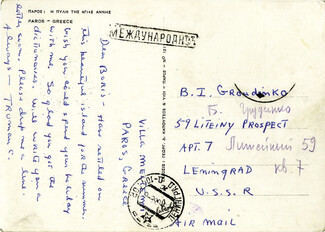 ΠΑΡΟΣ: Η ΠΥΛΗ ΤΗΣ ΑΓΙΑΣ ΑΝΝΗΣ
PAROS - GREECE
МЕЖДУНАРОДНОЕ
Dear Boris - Have settled on
this beautiful island for the summer.
Wish you could spend your holiday
with me. So glad you got the
dictionaries. Will write you a
letter soon. Please drop me a line.
Always - Truman C.
Villa Meltemi
Paros, Greece
B. I. Grandinko
Б. Груденко
59 LITEINY PROSPECT
APT. 7 Литейный 59
кв. 7
LENINGRAD
U.S.S.R
AIR MAIL